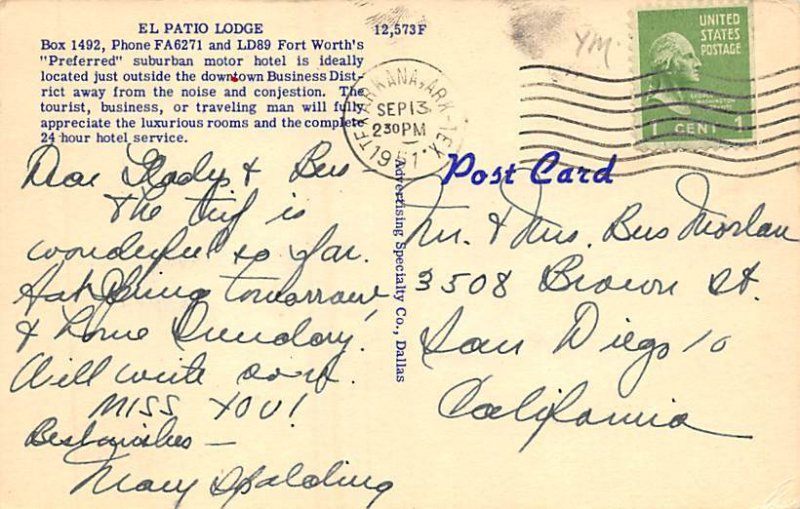 EL PATIO LODGE
Box 1492, Phone FA6271 and LD89 Fort Worth's
"Preferred" suburban motor hotel is ideally
located just outside the downtown Business Dist-
rict away from the noise and conjestion. The
tourist, business, or traveling man will fully
appreciate the luxurious rooms and the complete
24 hour hotel service.
12,573F
YM.
TEXARKANA, ARK-TEX.
SEP 13
2 30 PM
1951
UNITED
STATES
POSTAGE
1 CENT 1
Post Card
Advertising Specialty Co., Dallas
Dear Gladys & Bus –
The trip is
wonderful so far.
Hot Springs tomorrow,
& home Sunday.
Will write soon.
MISS YOU!
Best wishes –
Mary Spalding
Mr. & Mrs. Bus Morlan
3508 Brown St.
San Diego 10
California